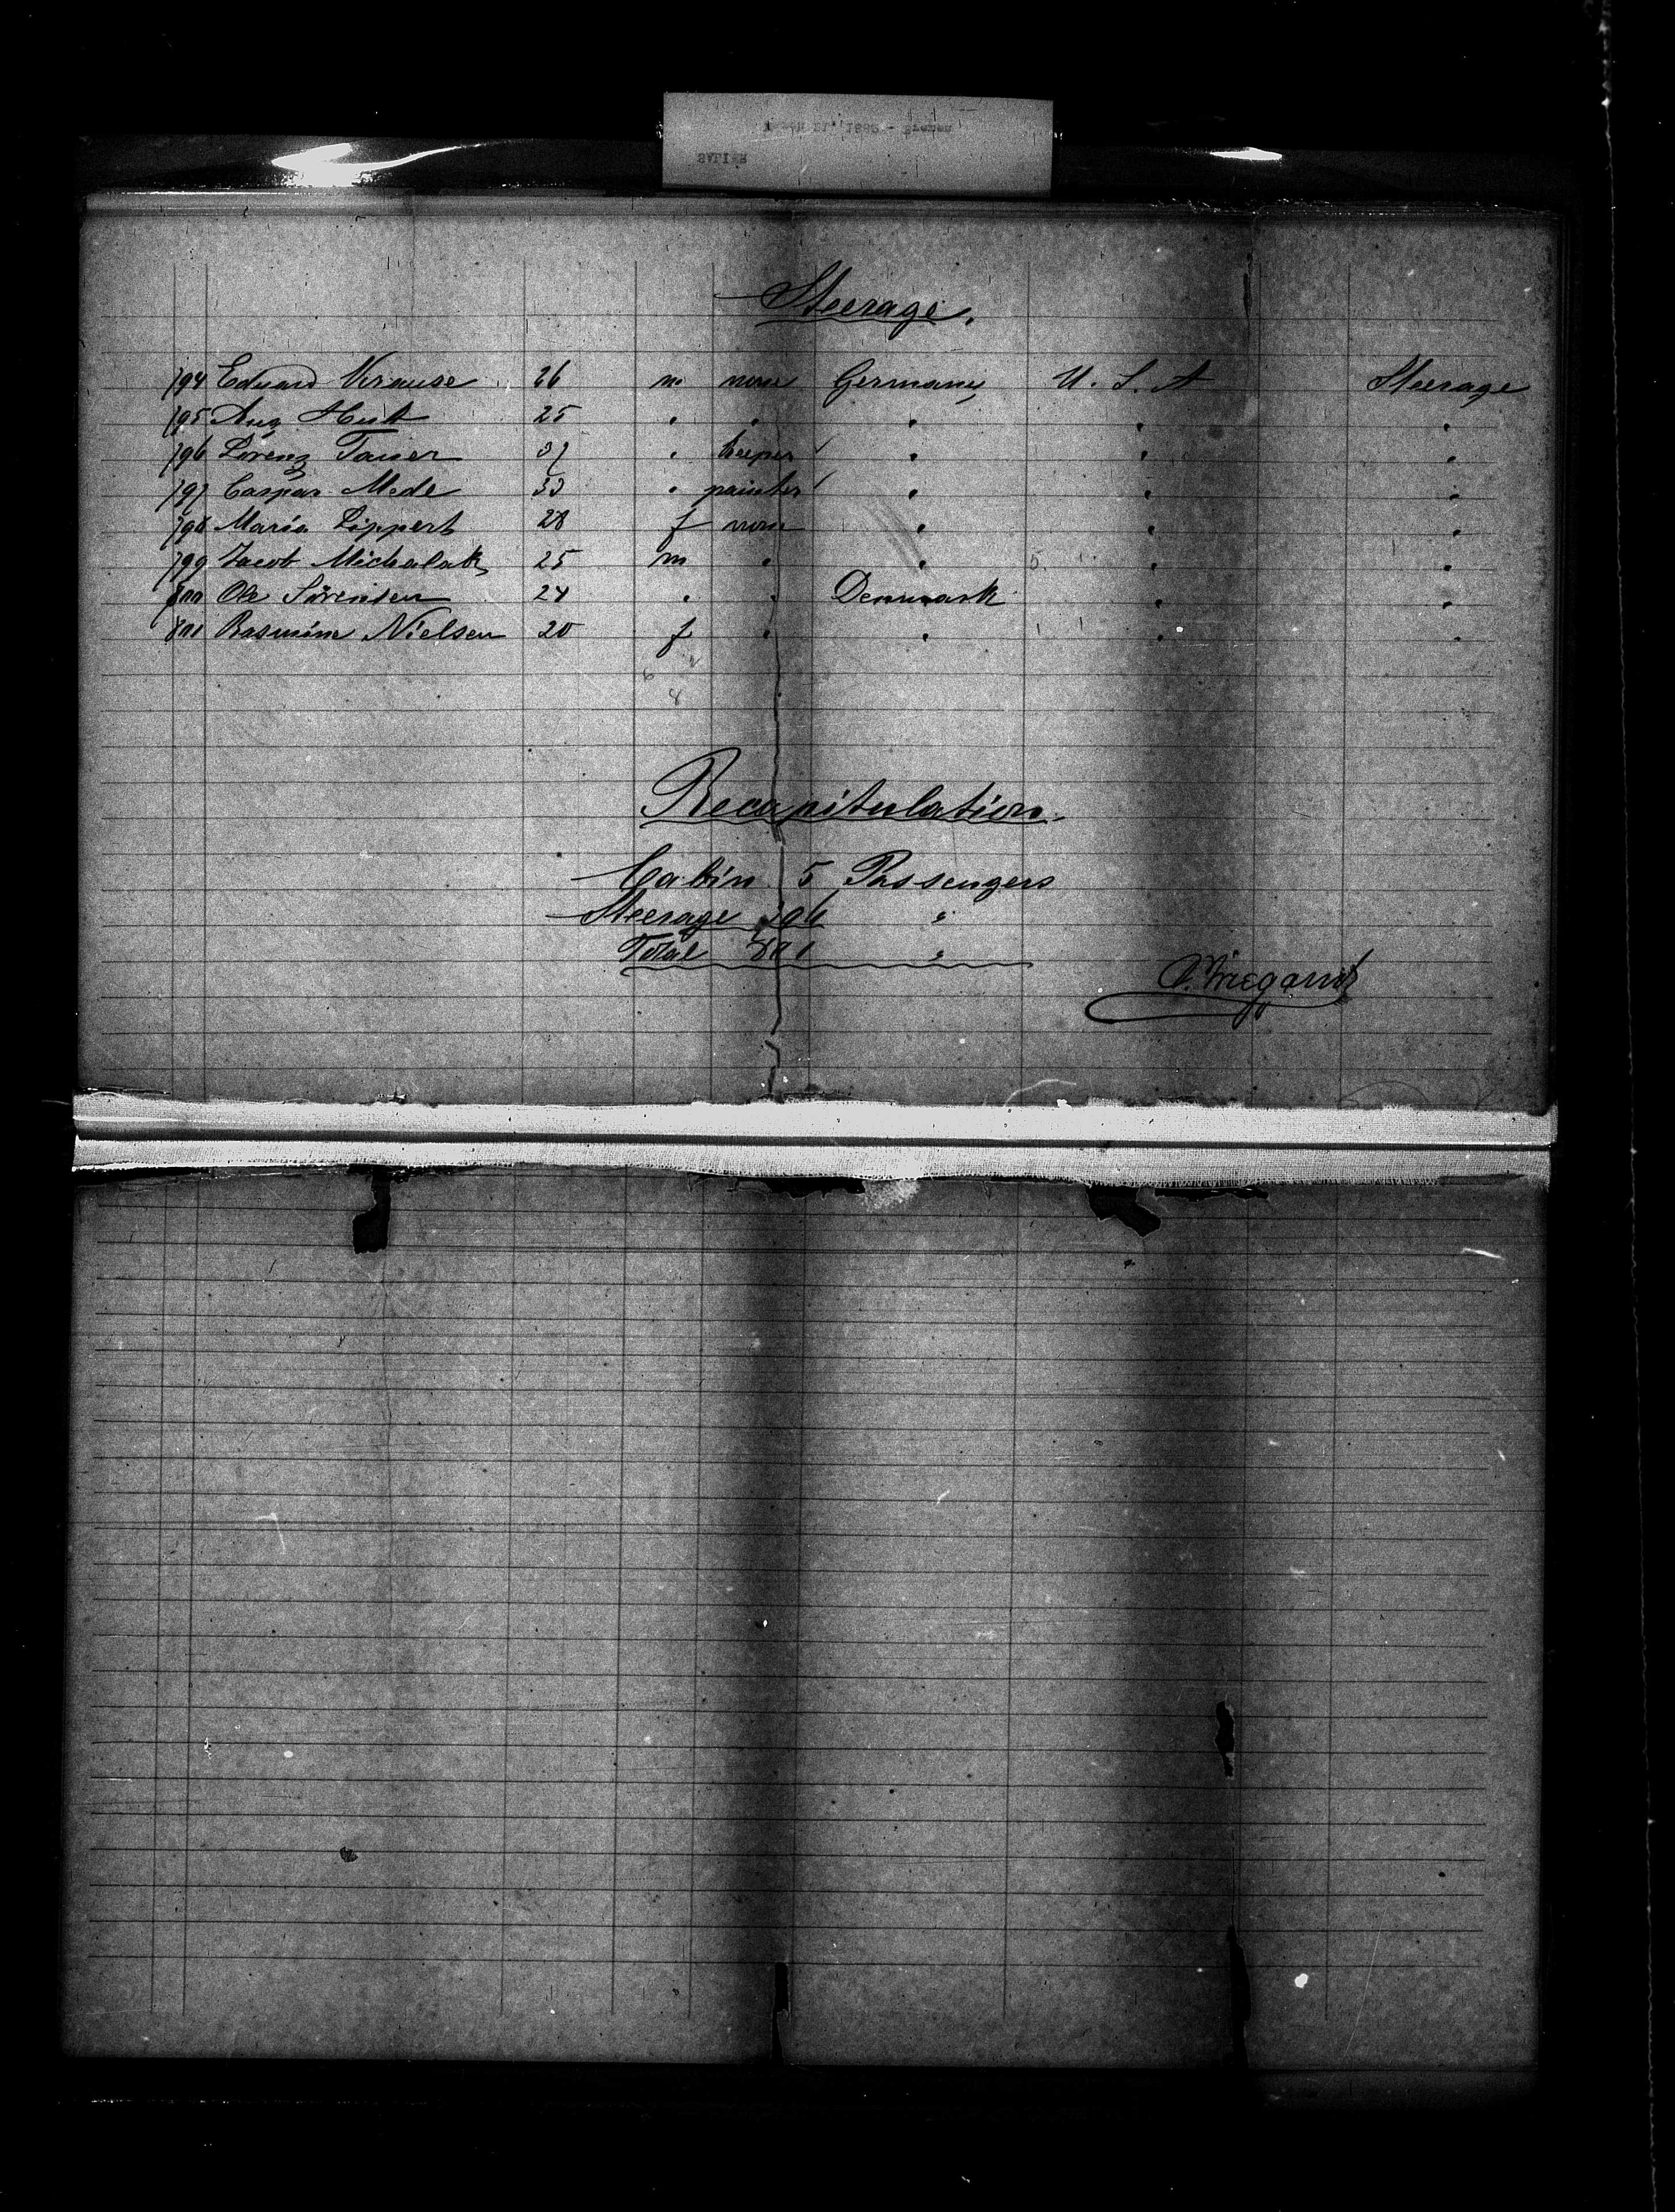 SALIER
Steerage.
794 Eduard Krause 26 m none Germany U. S. A Steerage
795 Aug Hutt 25 " " " " "
796 Lorenz Tauer 37 " keeper " " "
797 Caspar Mede 33 " painter " " "
798 Maria Lippert 28 f none " " "
799 Jacob Michalak 25 m " " " "
800 Ole Sörensen 24 " " Denmark " "
801 Rasmine Nielsen 20 f " " " "
6 2
8
Recapitulation.
Cabin 5 Passengers
Steerage 796 "
Total 801 "
Wiegand